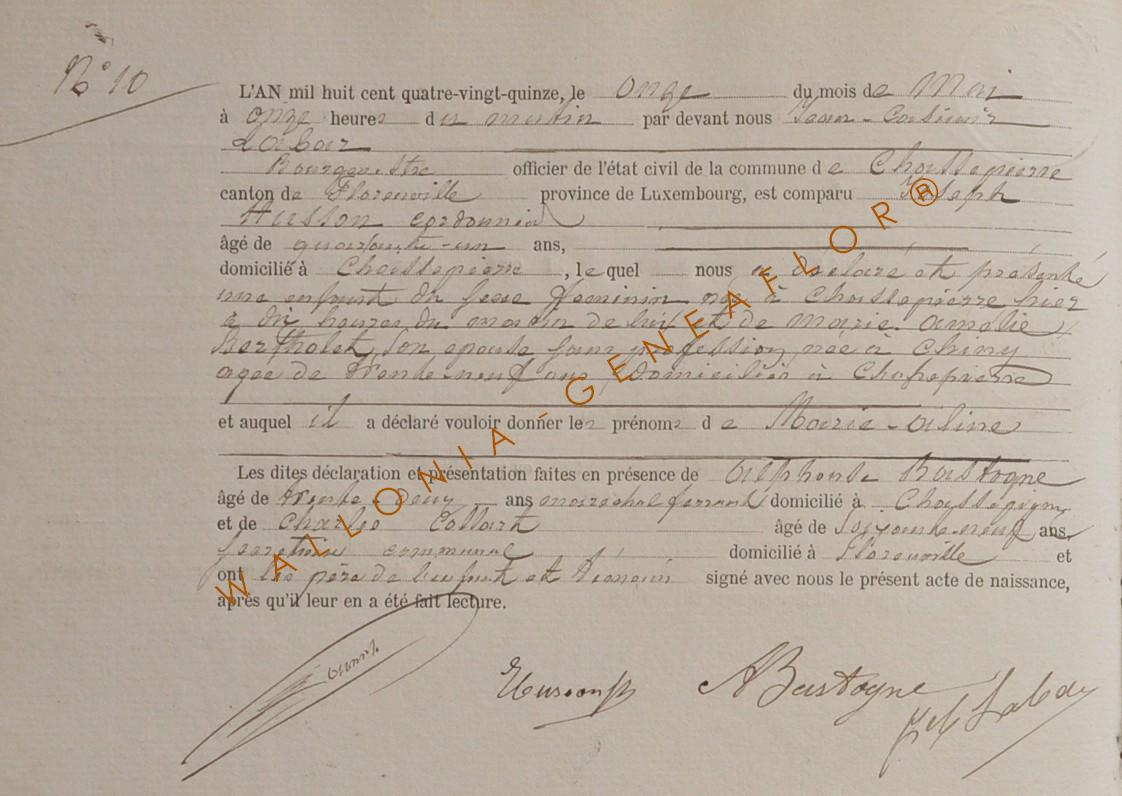 N° 10
L'AN mil huit cent quatre-vingt-quinze, le onze du mois de Mai
à onze heures du matin par devant nous Jean-Casimir
Labar
Bourgmestre officier de l'état civil de la commune de Chassepierre
canton de Florenville province de Luxembourg, est comparu Joseph
Husson cordonnier
âgé de quarante-un ans,
domicilié à Chassepierre, lequel nous a déclaré et présenté
une enfant du sexe féminin né à Chassepierre hier
à dix heures du matin de lui et de Marie Amélie
Bertholet, son épouse sans profession, née à Chiny
agée de trente-neuf ans, domiciliée à Chassepierre
et auquel il a déclaré vouloir donner les prénoms de Marie-Aline
Les dites déclaration et présentation faites en présence de Alphonse Bastogne
âgé de trente-deux ans maréchal ferrant domicilié à Chassepierre
et de Charles Collart âgé de soixante-neuf ans,
secrétaire communal domicilié à Florenville et
ont les père de l'enfant et témoins signé avec nous le présent acte de naissance,
après qu'il leur en a été fait lecture.
Husson J
ABastogne
WALLONIA - GENEAFLOR®